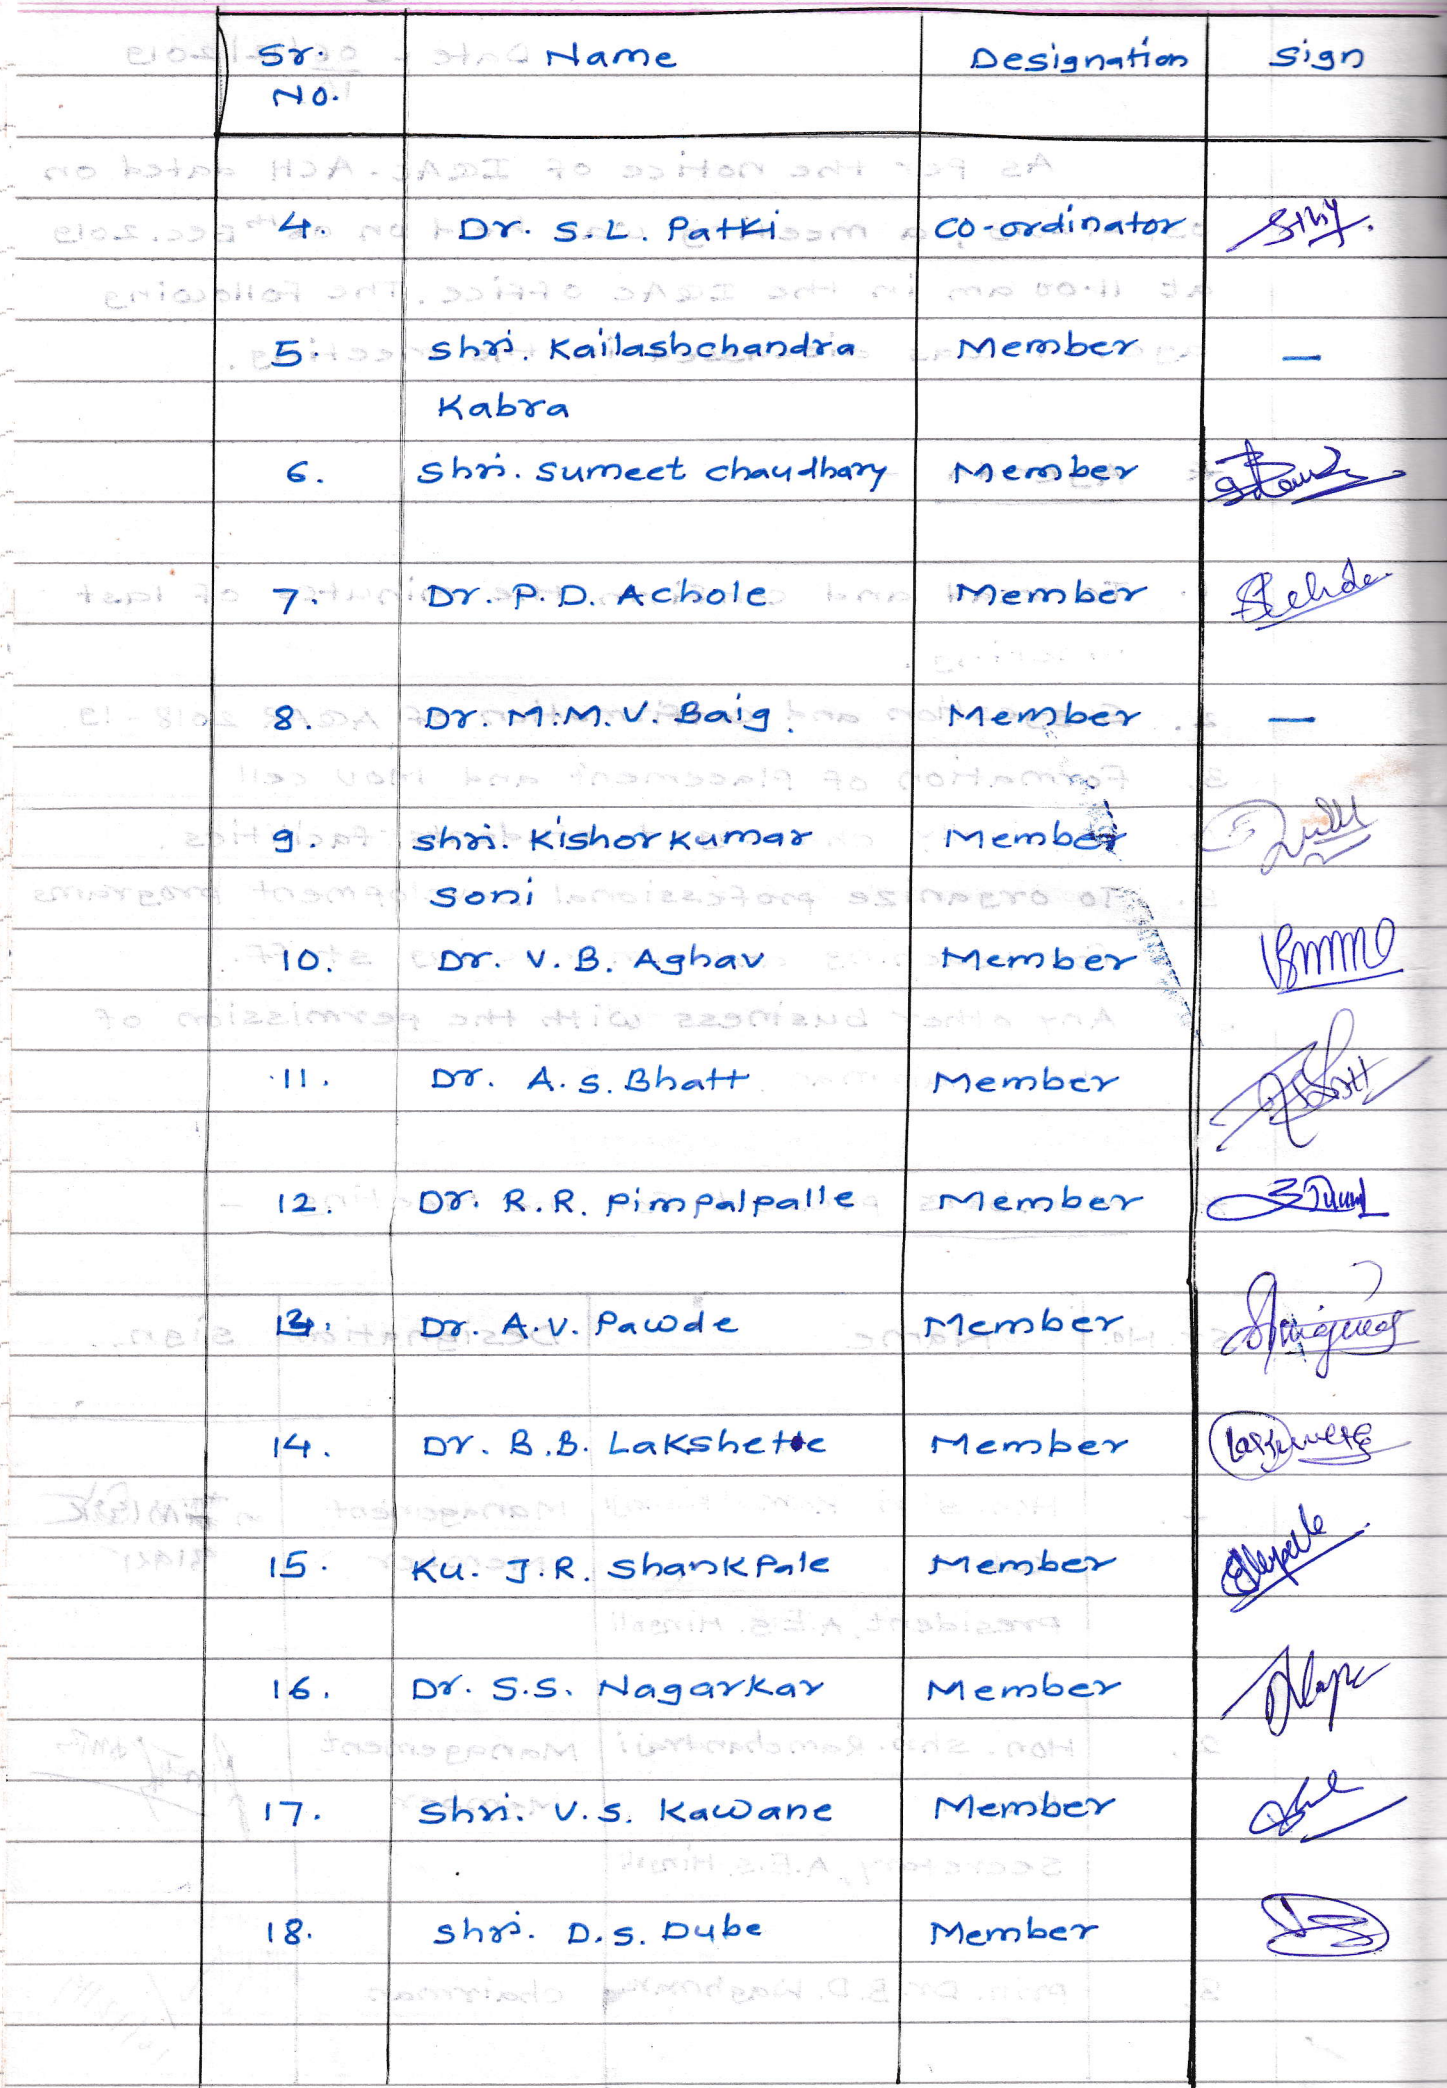 Sr. Name Designation Sign
No.
4. Dr. S.L. Patki Co-ordinator
5. Shri. Kailashchandra Member —
Kabra
6. Shri. Sumeet Chaudhary Member
7. Dr. P.D. Achole Member
8. Dr. M.M.V. Baig. Member —
9. Shri. Kishorkumar Member
Soni
10. Dr. V.B. Aghav Member
11. Dr. A.S. Bhatt Member
12. Dr. R.R. Pimpalpalle Member
13. Dr. A.V. Pawde Member
14. Dr. B.B. Lakshette Member
15. Ku. J.R. Shankpale Member
16. Dr. S.S. Nagarkar Member
17. Shri. V.S. Kawane Member
18. Shri. D.S. Dube Member